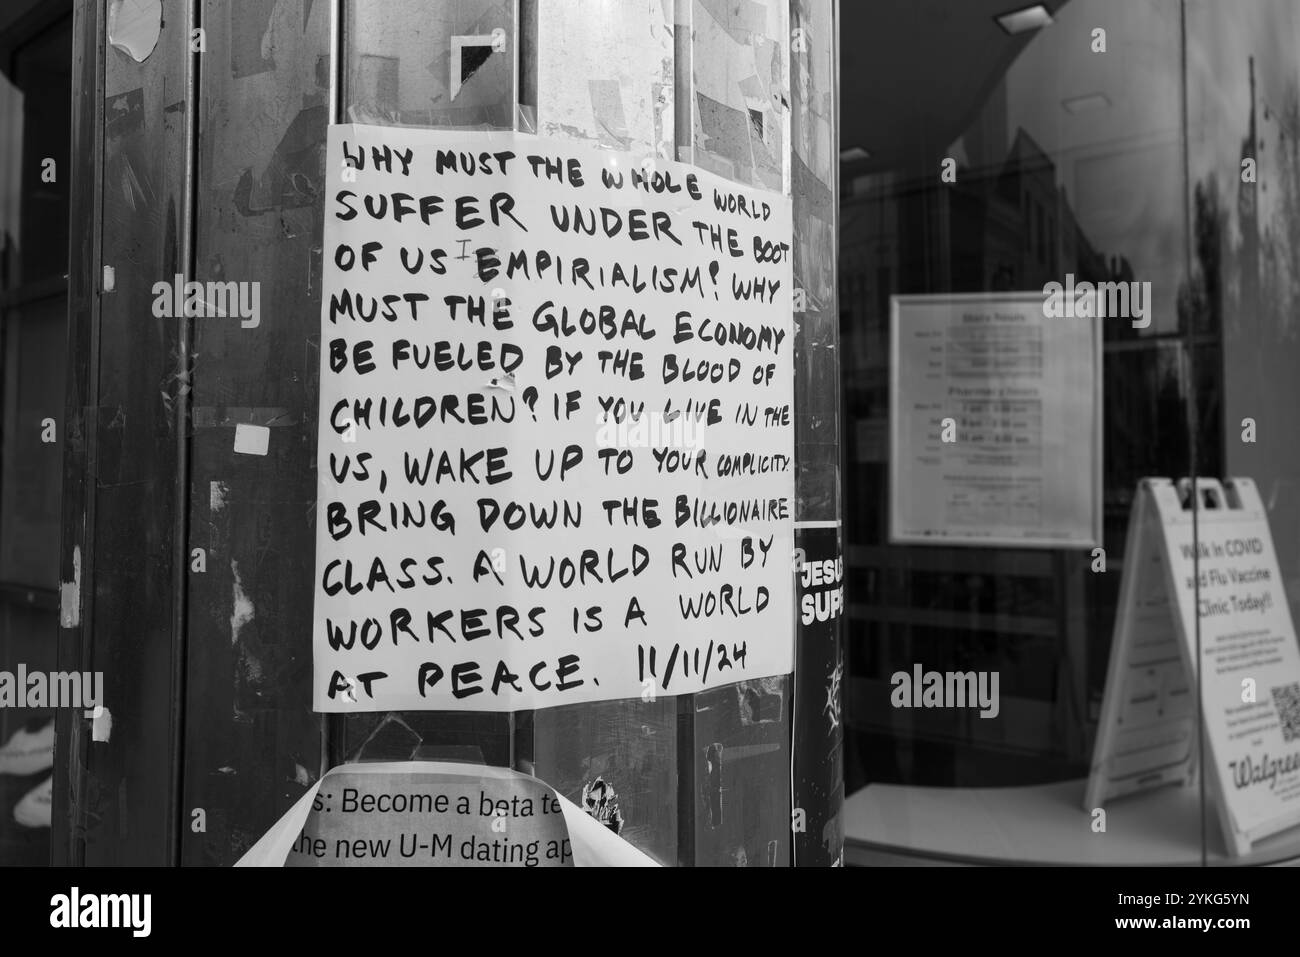 WHY MUST THE WHOLE WORLD
SUFFER UNDER THE BOOT
OF US I EMPIRIALISM? WHY
MUST THE GLOBAL ECONOMY
BE FUELED BY THE BLOOD OF
CHILDREN? IF YOU LIVE IN THE
US, WAKE UP TO YOUR COMPLICITY.
BRING DOWN THE BILLIONAIRE
CLASS. A WORLD RUN BY
WORKERS IS A WORLD
AT PEACE. 11/11/24
s: Become a beta te
he new U-M dating ap
JESU
SUP
Store hours
Pharmacy hours
Walk In COVID
and Flu Vaccine
Clinic Today!!
Walgree
alamy
Image ID: 2YKG5YN
www.alamy.com